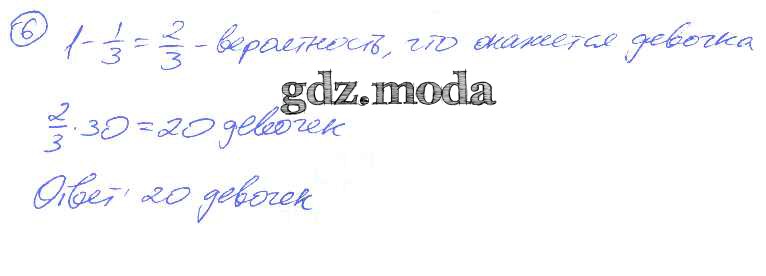 6 1 - 1/3 = 2/3 - вероятность, что окажется девочка
gdz.moda
2/3 · 30 = 20 девочек
Ответ: 20 девочек